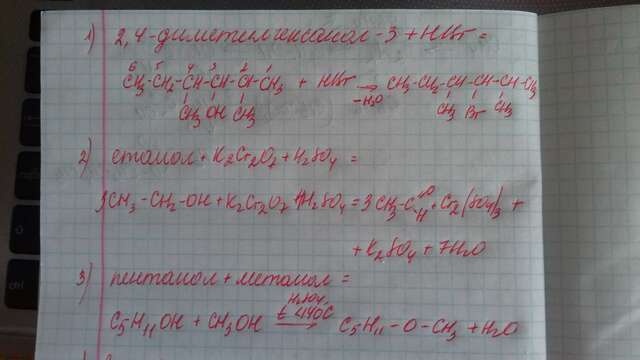 1) 2,4-диметилгексанол-3 + HBr =
6 5 4 3 2 1
CH3-CH2-CH-CH-CH-CH3 + HBr → CH3-CH2-CH-CH-CH-CH3
-H2O
CH3 OH CH3 CH3 Br CH3
2) етанол + K2Cr2O7 + H2SO4 =
3CH3-CH2-OH + K2Cr2O7 + 4H2SO4 = 3CH3-C=O H + Cr2(SO4)3 +
+ K2SO4 + 7H2O
3) пентанол + метанол =
H2SO4
C5H11OH + CH3OH → C5H11-O-CH3 + H2O
t <140C